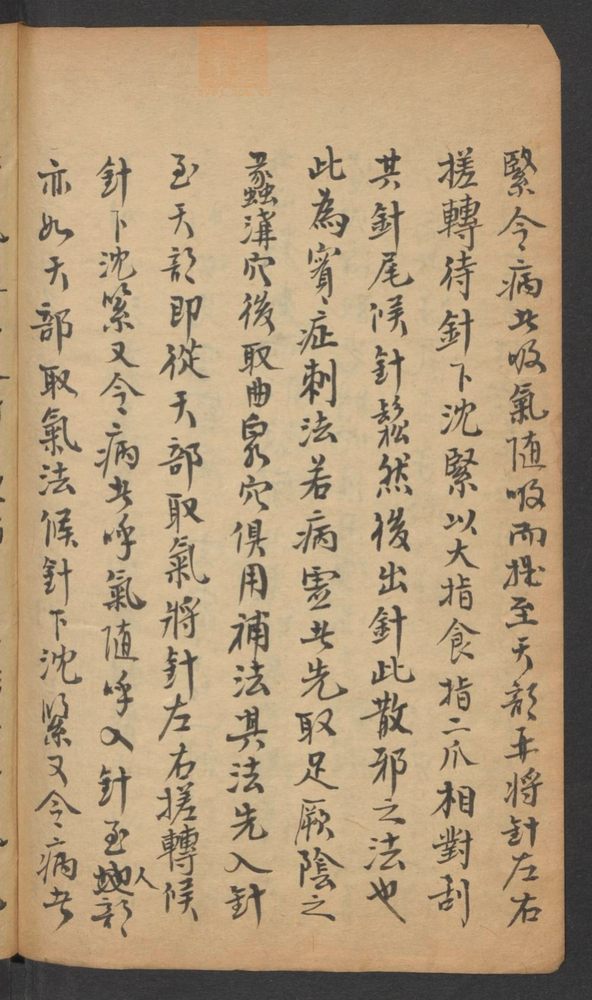 緊令病者吸氣随吸而提至天部再將針左右
搓轉待針下沈緊以大指食指二爪相對刮
其針尾候針鬆然後出針此散邪之法也
此為實症刺法若病虛者先取足厥陰之
蠡溝穴後取曲泉穴俱用補法其法先入針
至天部即從天部取氣將針左右搓轉候
針下沈緊又令病者呼氣随呼入針至人部
亦如天部取氣法候針下沈緊又令病者